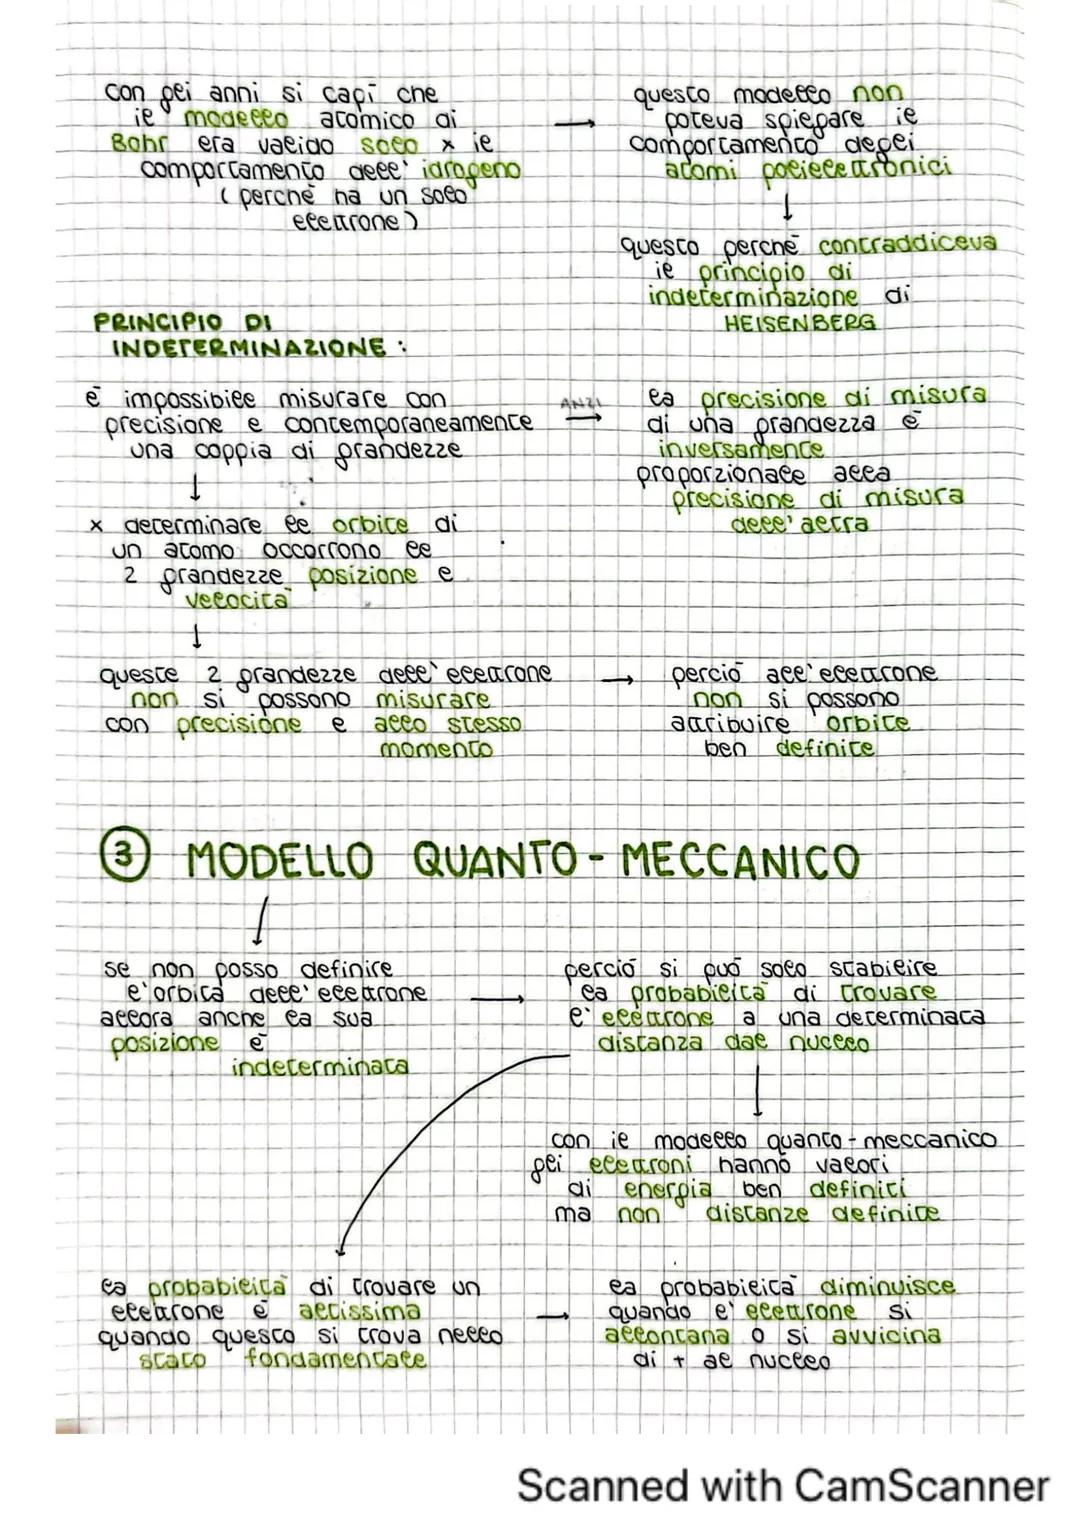 con gli anni si capì che
il modello atomico di
Bohr era valido solo x il
comportamento dell'idrogeno
(perché ha un solo
elettrone)
→
questo modello non
poteva spiegare il
comportamento degli
atomi polielettronici
↓
questo perché contraddiceva
il principio di
indeterminazione di
HEISENBERG
PRINCIPIO DI
INDETERMINAZIONE :
è impossibile misurare con
precisione e contemporaneamente
una coppia di grandezze
ANZI
→
la precisione di misura
di una grandezza è
inversamente
proporzionale alla
precisione di misura
dell'altra
↓
x determinare le orbite di
un atomo occorrono le
2 grandezze posizione e
velocità
↓
queste 2 grandezze dell'elettrone
non si possono misurare
con precisione e allo stesso
momento
→
perciò all'elettrone
non si possono
attribuire orbite
ben definite
3 MODELLO QUANTO-MECCANICO
↓
se non posso definire
l'orbita dell'elettrone
allora anche la sua
posizione è
indeterminata
→
perciò si può solo stabilire
la probabilità di trovare
l'elettrone a una determinata
distanza dal nucleo
↓
con il modello quanto-meccanico
gli elettroni hanno valori
di energia ben definiti
ma non distanze definite
la probabilità di trovare un
elettrone è altissima
quando questo si trova nello
stato fondamentale
→
la probabilità diminuisce
quando l'elettrone si
allontana o si avvicina
di + al nucleo
Scanned with CamScanner